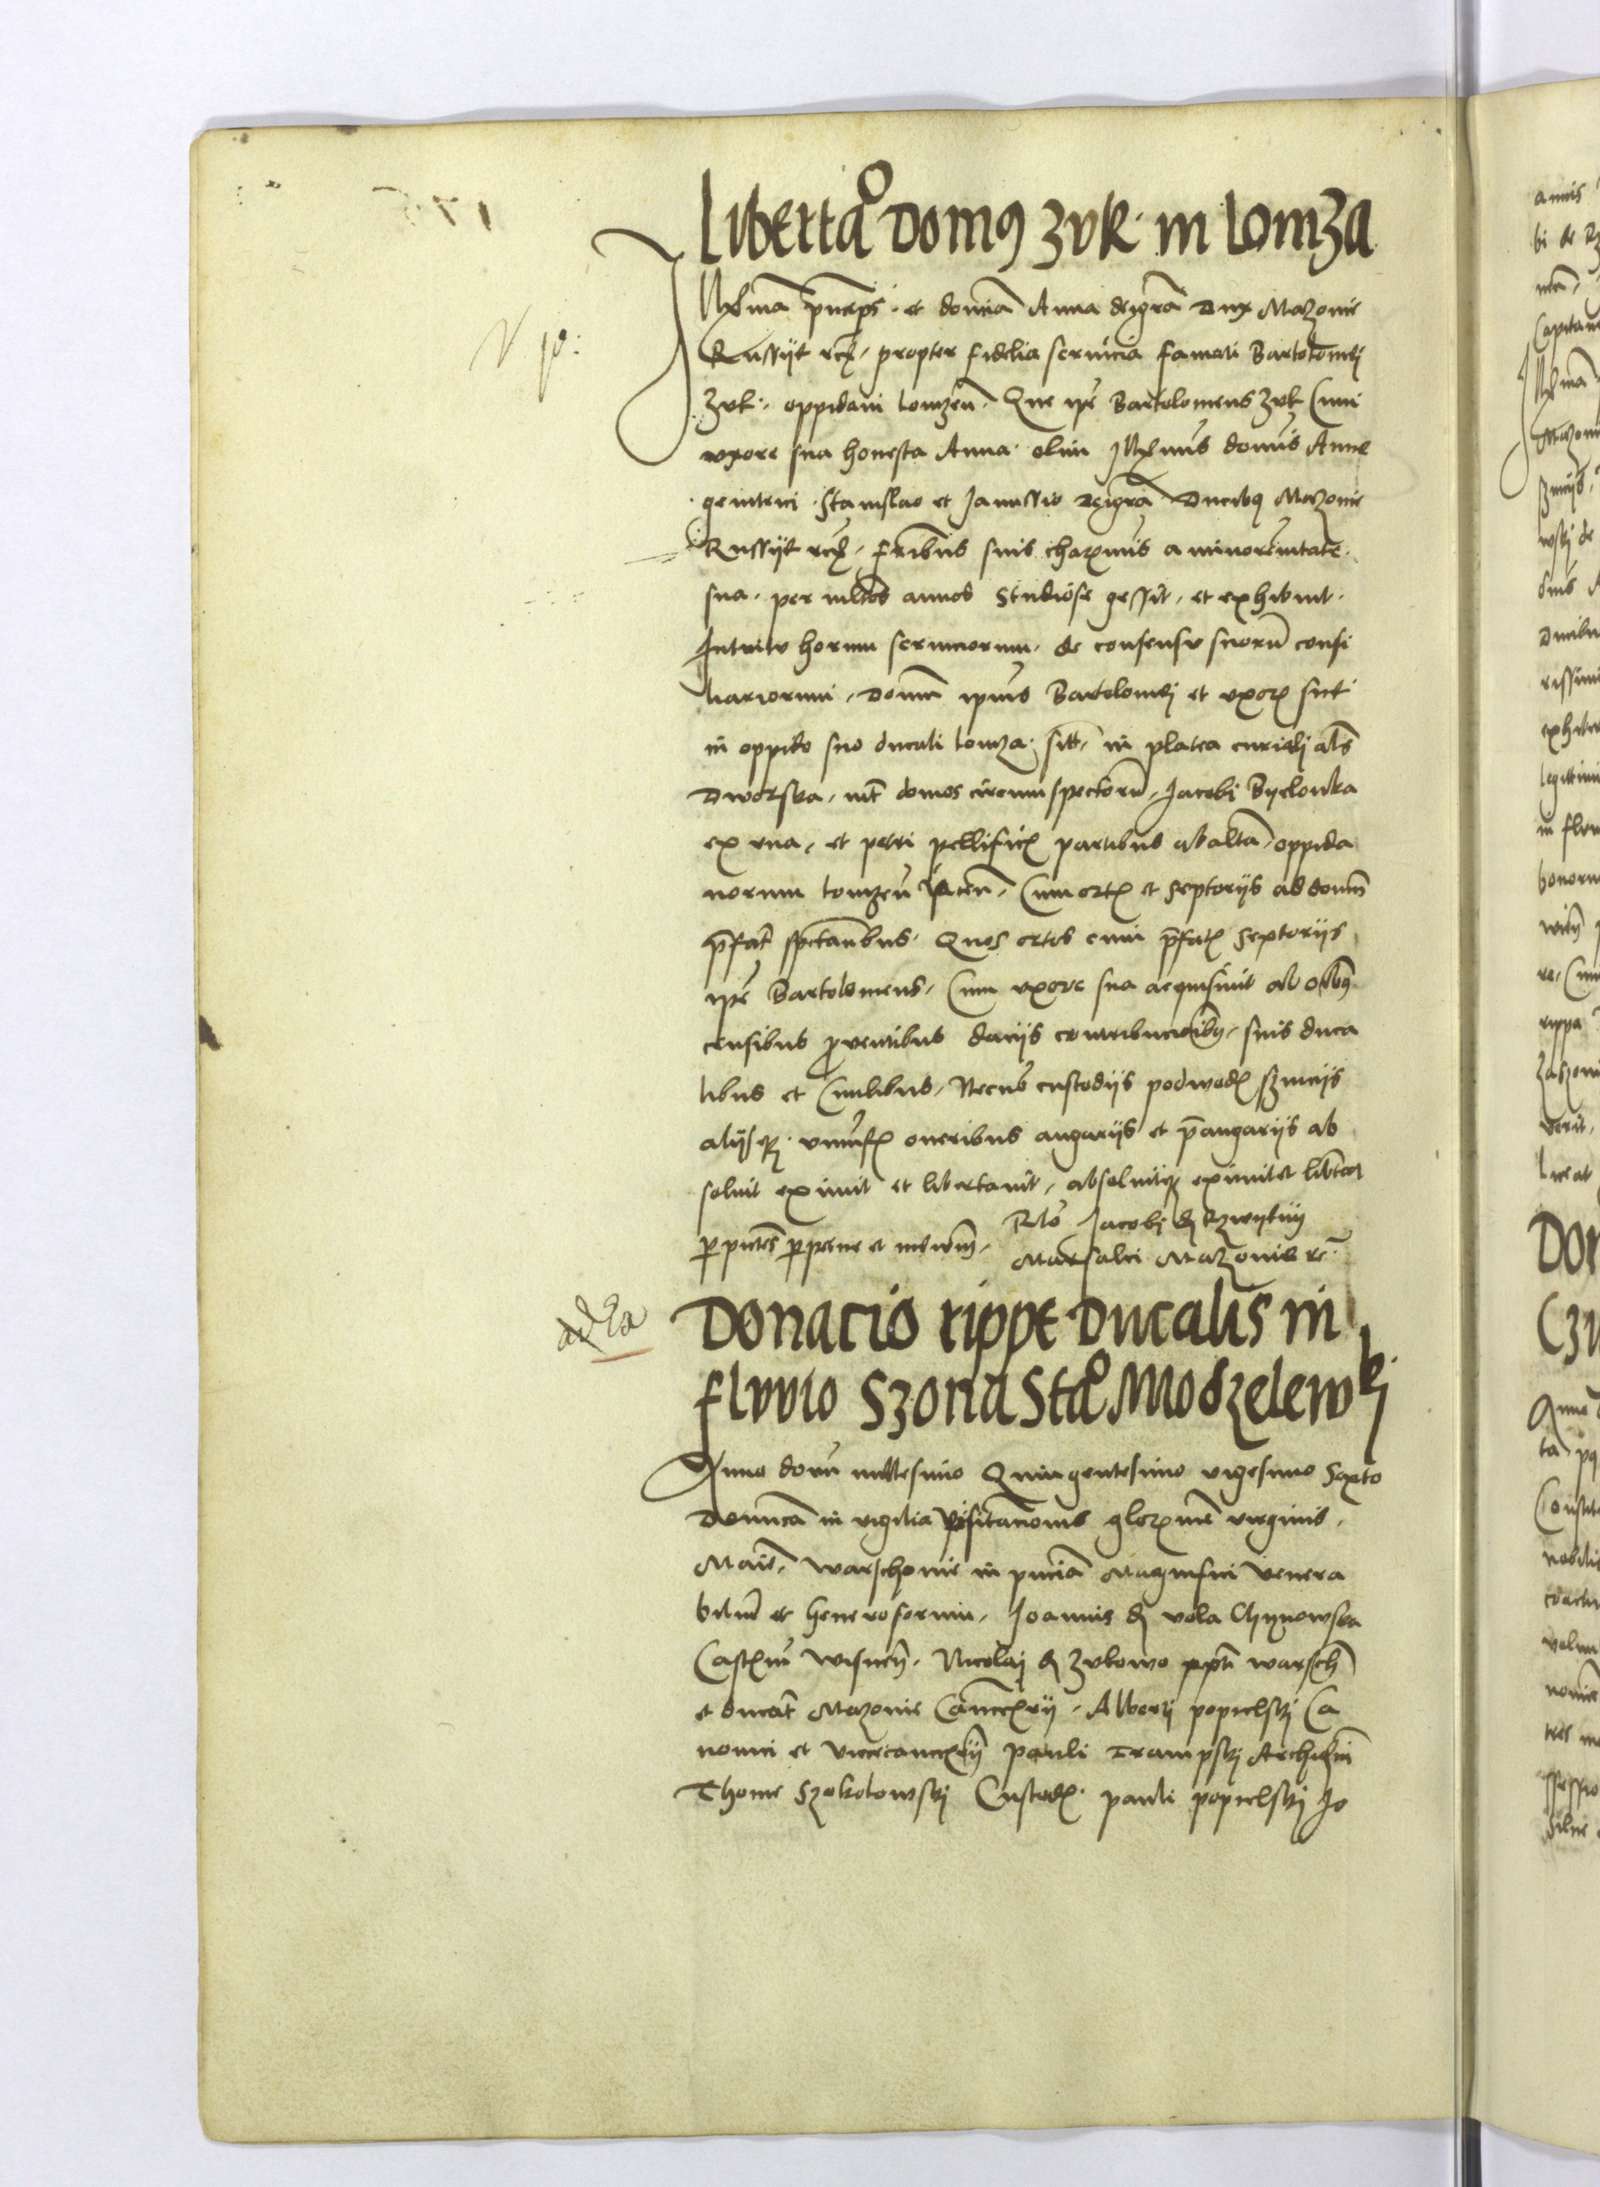 Liberta° Domus Zuk in Lomza
Illma princeps et domina Anna dei gra Dux Mazovie
Russyae etc. propter fidelia servicia famati Bartolomei
Zuk oppidani Lomzen. Que ipe Bartolomeus Zuk Cum
uxore sua honesta Anna olim Illmis domis Anne
genitrici Stanislao et Janussio dei gra Ducibus Mazovie
Russyae etc. fribus suis charmis a minorennitate
sua per multos annos studiose gessit et exhibuit
Intuitu horum serviciorum de consensu suorum consi
liariorum Domum ipius Bartolomei et uxoris sue
in oppido suo ducali Lomza sitt. in platea curiali als
Dworska int domos circumspectoru Jacobi Byelonka
ex una et petri pellificis partibus ab altera oppida
norum Lomzen iacen. Cum ortis et septoriis ad domum
prefat spectantibus Quos ortos cum prefatis septoriis
ipe Bartolomeus Cum uxore sua acquisivit ab omnibus
censibus proventibus daciis contribucionibus suis duca
libus et Civilibus Necnon custodiis podwodis
aliisque universis oneribus angariis et preangariis ab
soluit eximit et libertavit absoluitque eximit et libertat
per pntes perpetue et in evum Rlo Jacobi de Rzwykuy
Marsalci Mazovie etc.
Donacio rippe Ducalis in
fluvio Szona Sta° Modzelewski
Anno domi millesimo Quingentesimo vigesimo Sexto
Dominica in vigilia Visitacionis glorme virginis
Marie Warschovie in pncia Magnifici Venera
bilium et Generosorum Joannis de vola Chynowska
Castellani Wisnen. Nicolai de Zukowo ppti warsch
et ducat Mazovie Cancellarii Alberti popielski Ca
nonici et vicecancellarii pauli Trampski Archidiaconi
Thome Szokolowski Custodis pauli popielski Jo